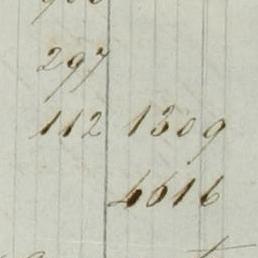 297
112 1309
4616